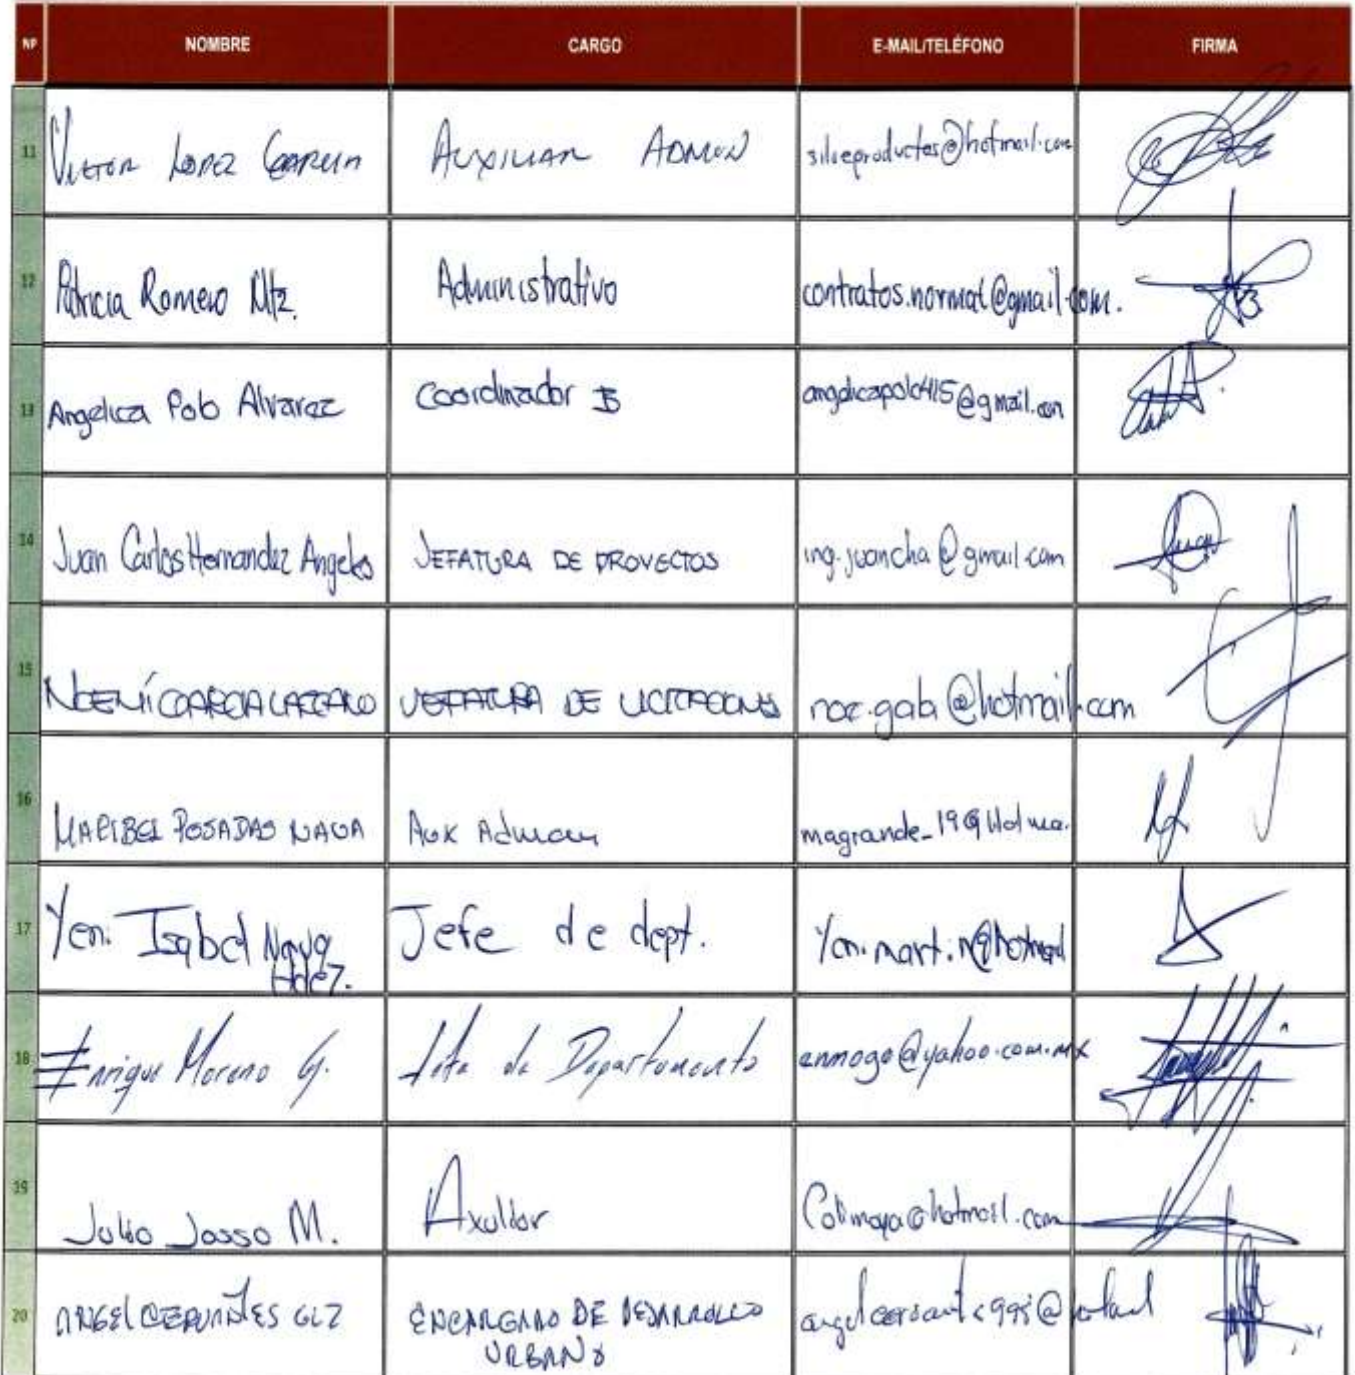 Nº NOMBRE CARGO E-MAIL/TELÉFONO FIRMA
11 Victor Lopez Garcia Auxiliar Admon silveproductos@hotmail.com
12 Patricia Romero Mtz. Administrativo contratos.normat@gmail.com.
13 Angelica Polo Alvarez Coordinador B angelicapolo415@gmail.com
14 Juan Carlos Hernandez Angeles JEFATURA DE PROYECTOS ing.juancha@gmail.com
15 NOEMÍ GARCIA LAZCANO JEFATURA DE LICITACIONES noe.gala@hotmail.com
16 MARIBEL POSADAS NAVA Aux Admon magrande_19@Hotma.
17 Yeni Isabel Nava Hdez. Jefe de dept. Yeni.martin@hotmail
18 Enrique Moreno G. Jefe de Departamento enmogo@yahoo.com.mx
19 Julio Josso M. Axuliar @hotmail.com
20 ANGEL CERVANTES GLZ ENCARGADO DE DESARROLLO
URBANO